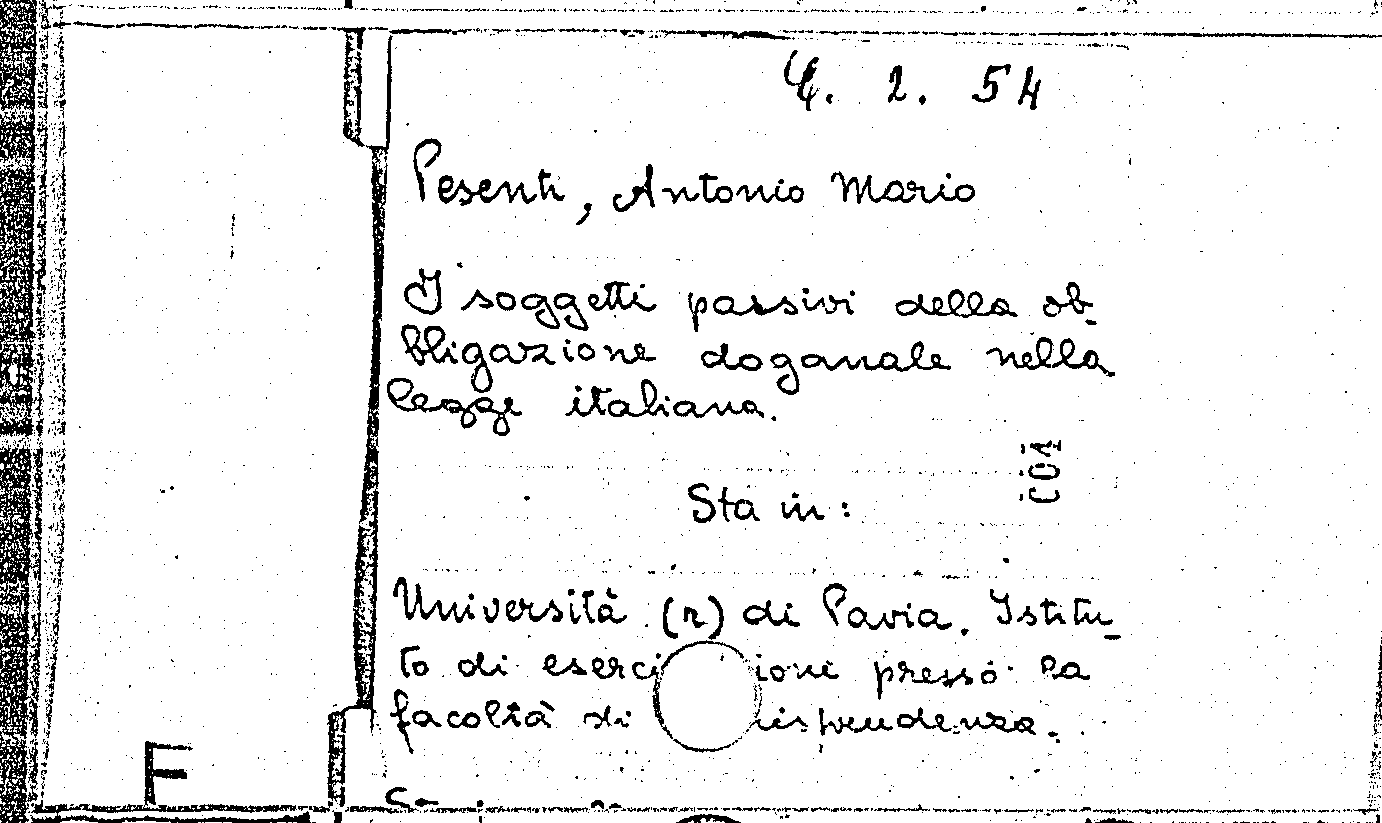 C. 2. 54
Pesenti, Antonio Mario
I soggetti passivi della ob-
bligazione doganale nella
legge italiana.
COI
Sta in:
Università (r) di Pavia. Istitu-
to di eserci ioni presso la
facoltà di risprudenza.
F